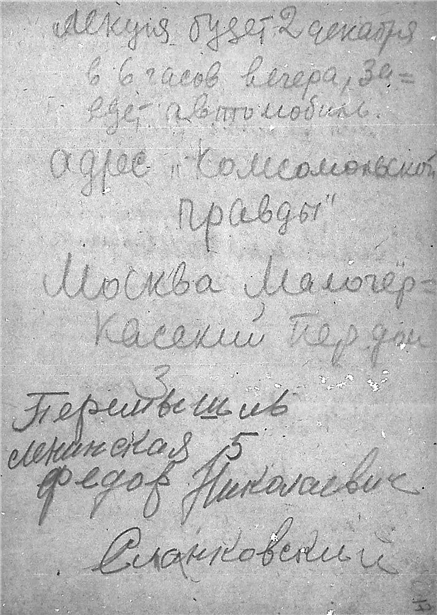 лекция будет 2 декабря
в 6 часов вечера, за=
едет автомобиль.
адрес „Комсомольской
правды"
Москва Малочер=
касский пер дом
3
Перемышль
Ленинская 5
Федор Николаевич
Сланковский